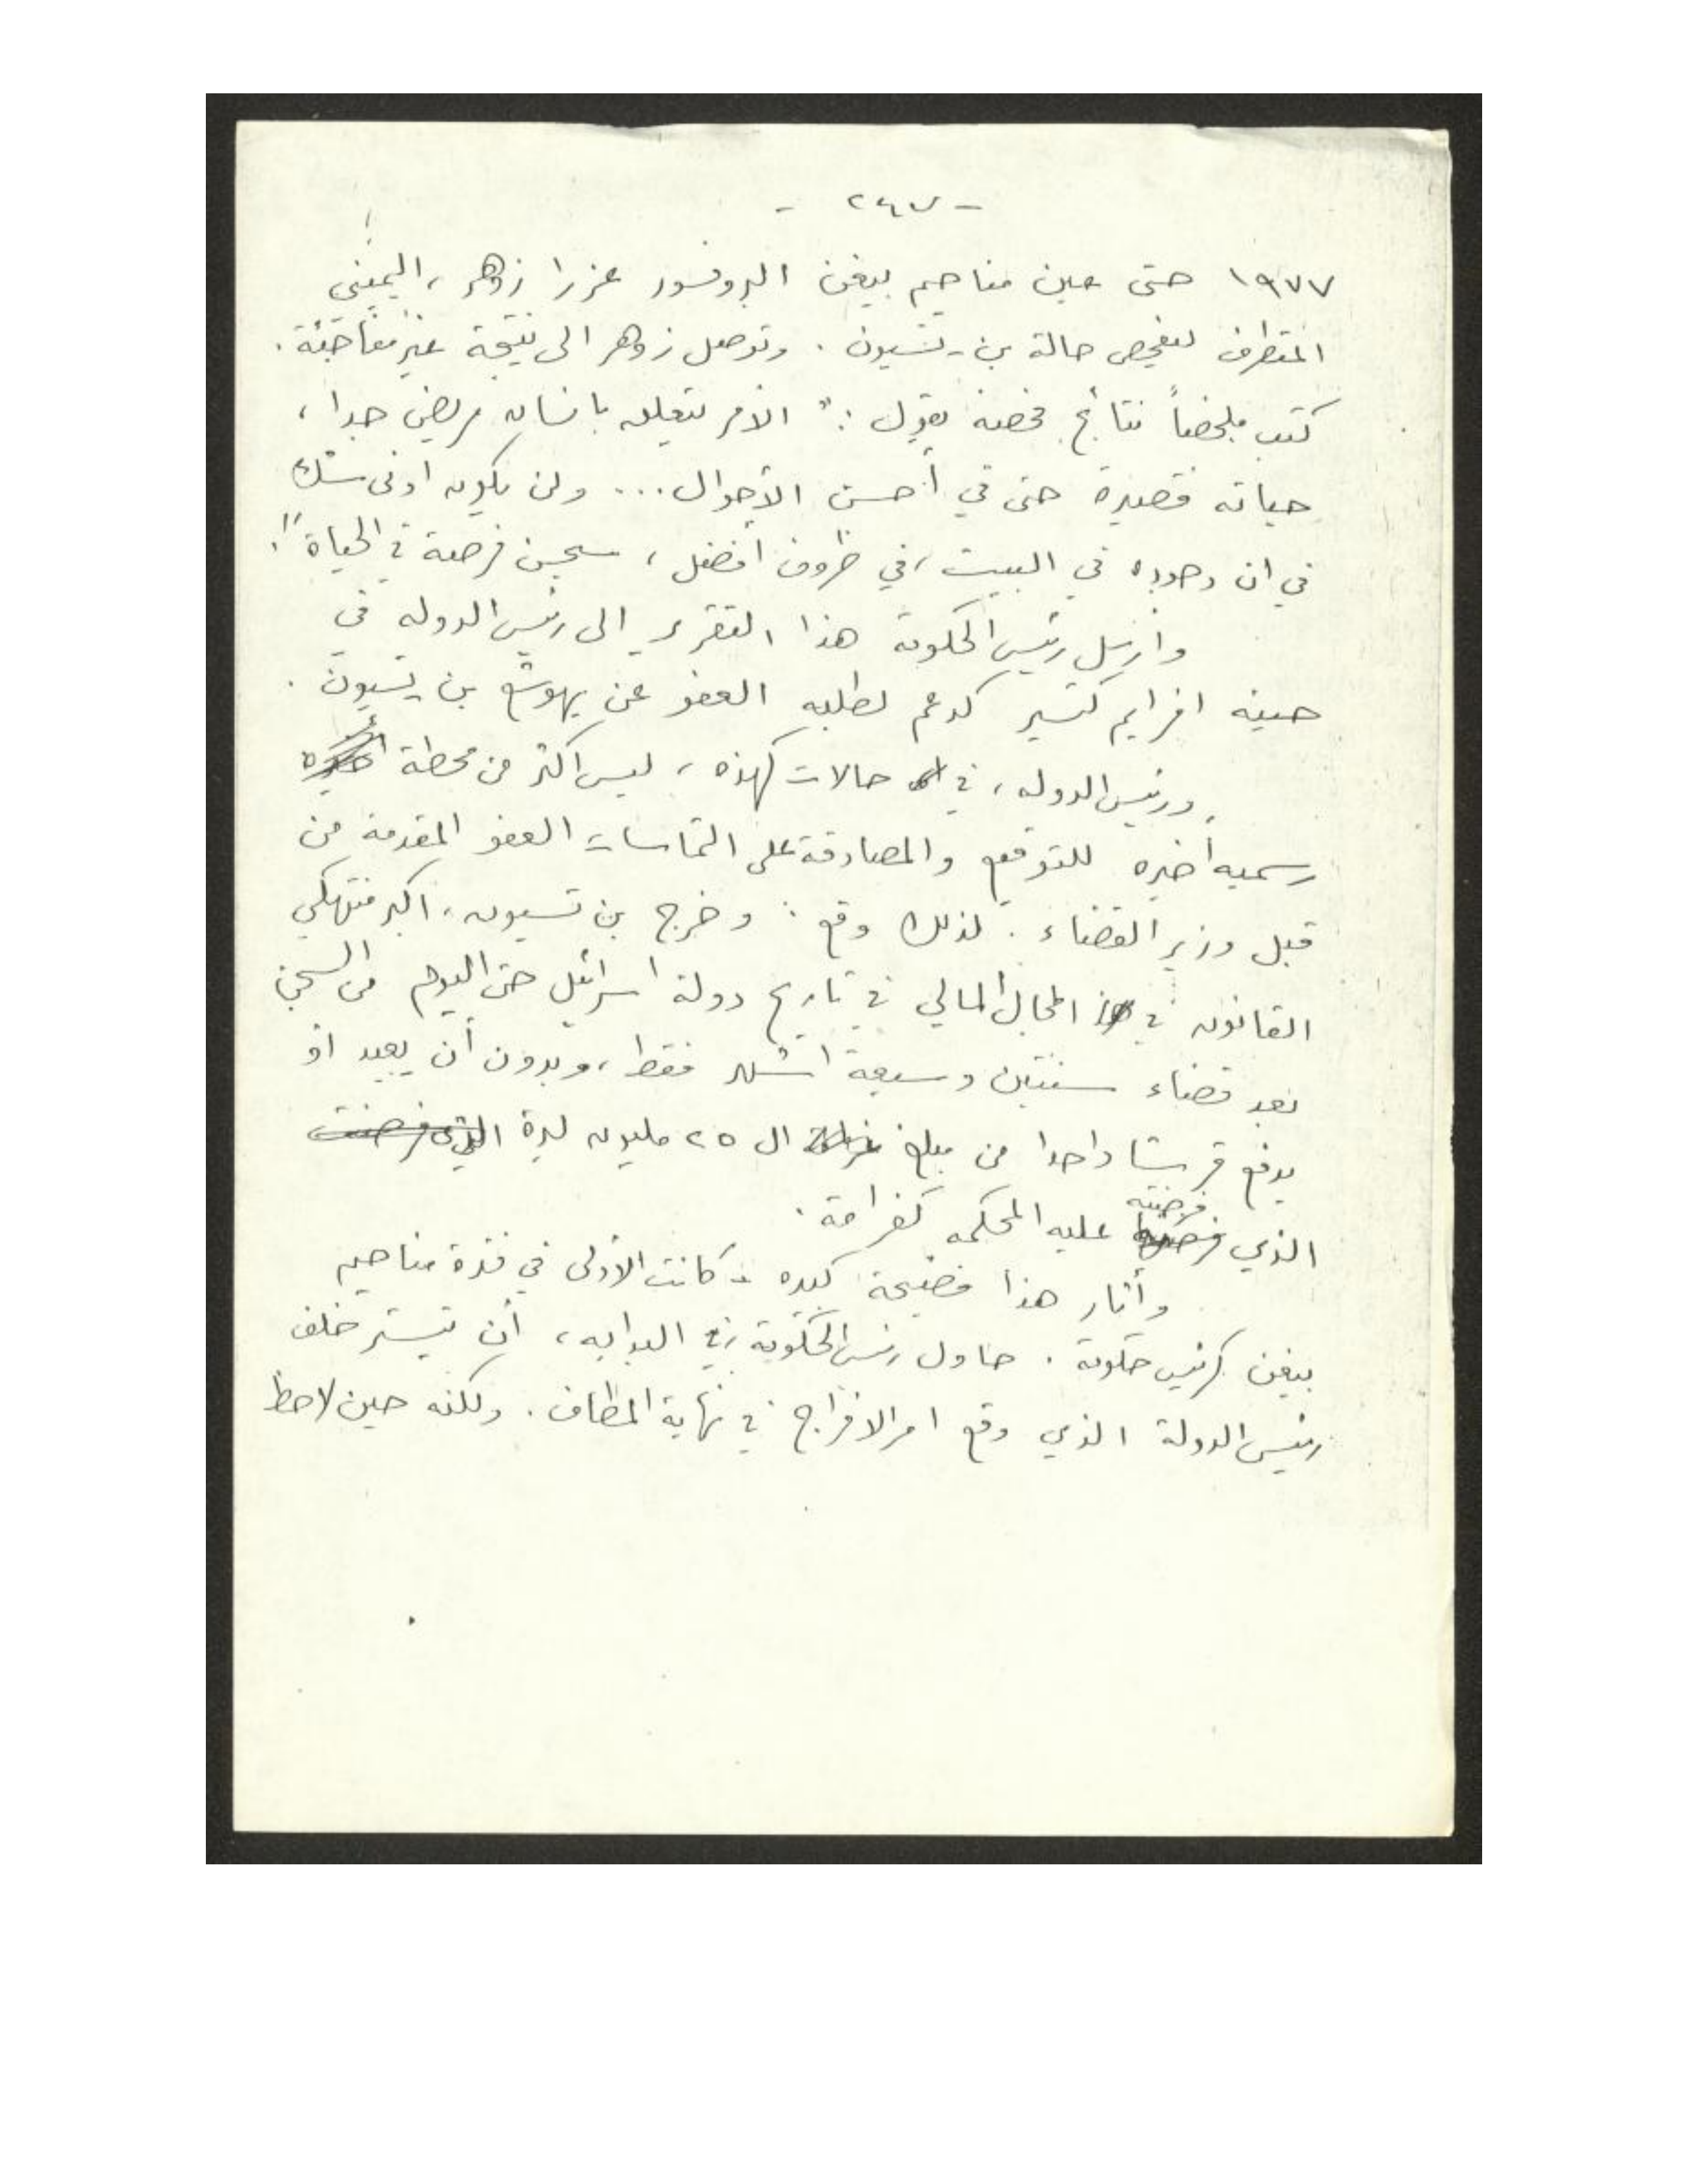 - ٢٤٧ -
١٩٧٧ حتى عين مناحيم بيغن البروفسور عزرا زوهر، اليميني
المتطرف لفحص حالة بن - تسيون . وتوصل زوهر الى نتيجة غير مفاجئة .
كتب ملخصاً نتائج فحصه يقول : " الأمر يتعلق بانسان مريض جدا ،
حياته قصيرة حتى في أحسن الأحوال ... ولن يكون ادنى شك
في ان وجوده في البيت ، في ظروف أفضل ، سيحسن فرصة في الحياة " .
وأرسل رئيس الحكومة هذا التقرير الى رئيس الدوله في
حينه افرايم كتسير كدعم لطلبه العفو عن يهوشع بن تسيون .
ورئيس الدوله ، في حالات كهذه ، ليس اكثر من محطة
رسميه أخيره للتوقيع والمصادقة على التماسات العفو المقدمة من
قبل وزير القضاء . لذلك وقع . وخرج بن تسيون ، اكبر منتهكي
القانون في المجال المالي في تاريخ دولة اسرائيل حتى اليوم من السجن
بعد قضاء سنتين وسبعة اشهر فقط ، وبدون أن يعيد او
يدفع قرشا واحدا من مبلغ ال ٢٥ مليون ليرة
الذي فرضته عليه المحكمه كغرامة .
وأثار هذا فضيحة كبيره - كانت الأولى في فترة مناحيم
بيغن كرئيس حكومة . حاول رئيس الحكومة في البدايه ، أن يتستر خلف
رئيس الدولة الذي وقع امر الافراج في نهاية المطاف . ولكنه حين لاحظ